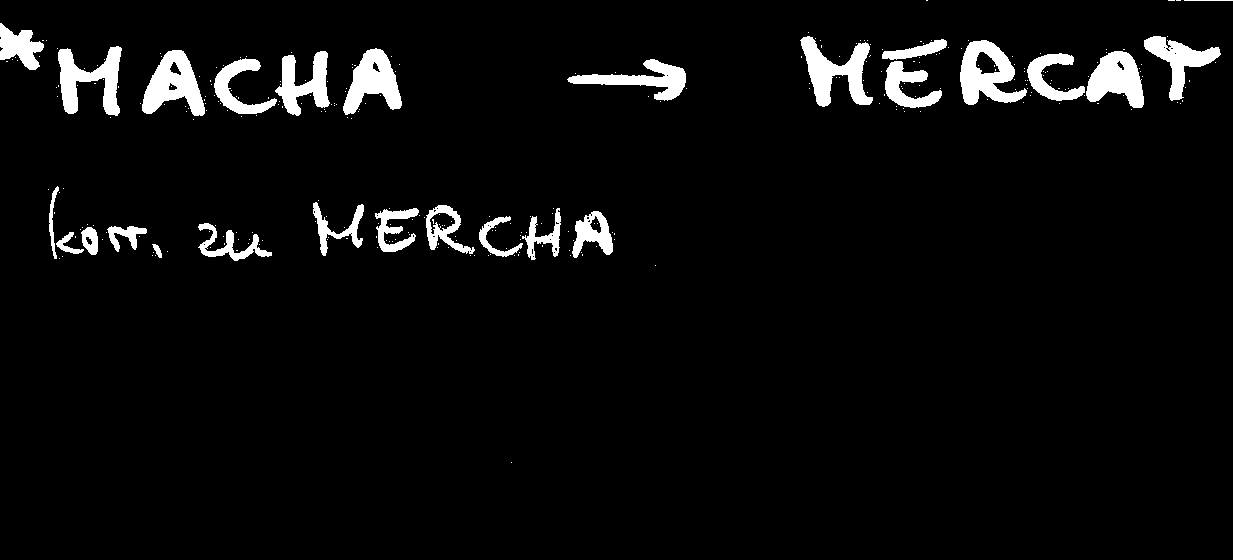 *MACHA → MERCAT
korr. zu MERCHA